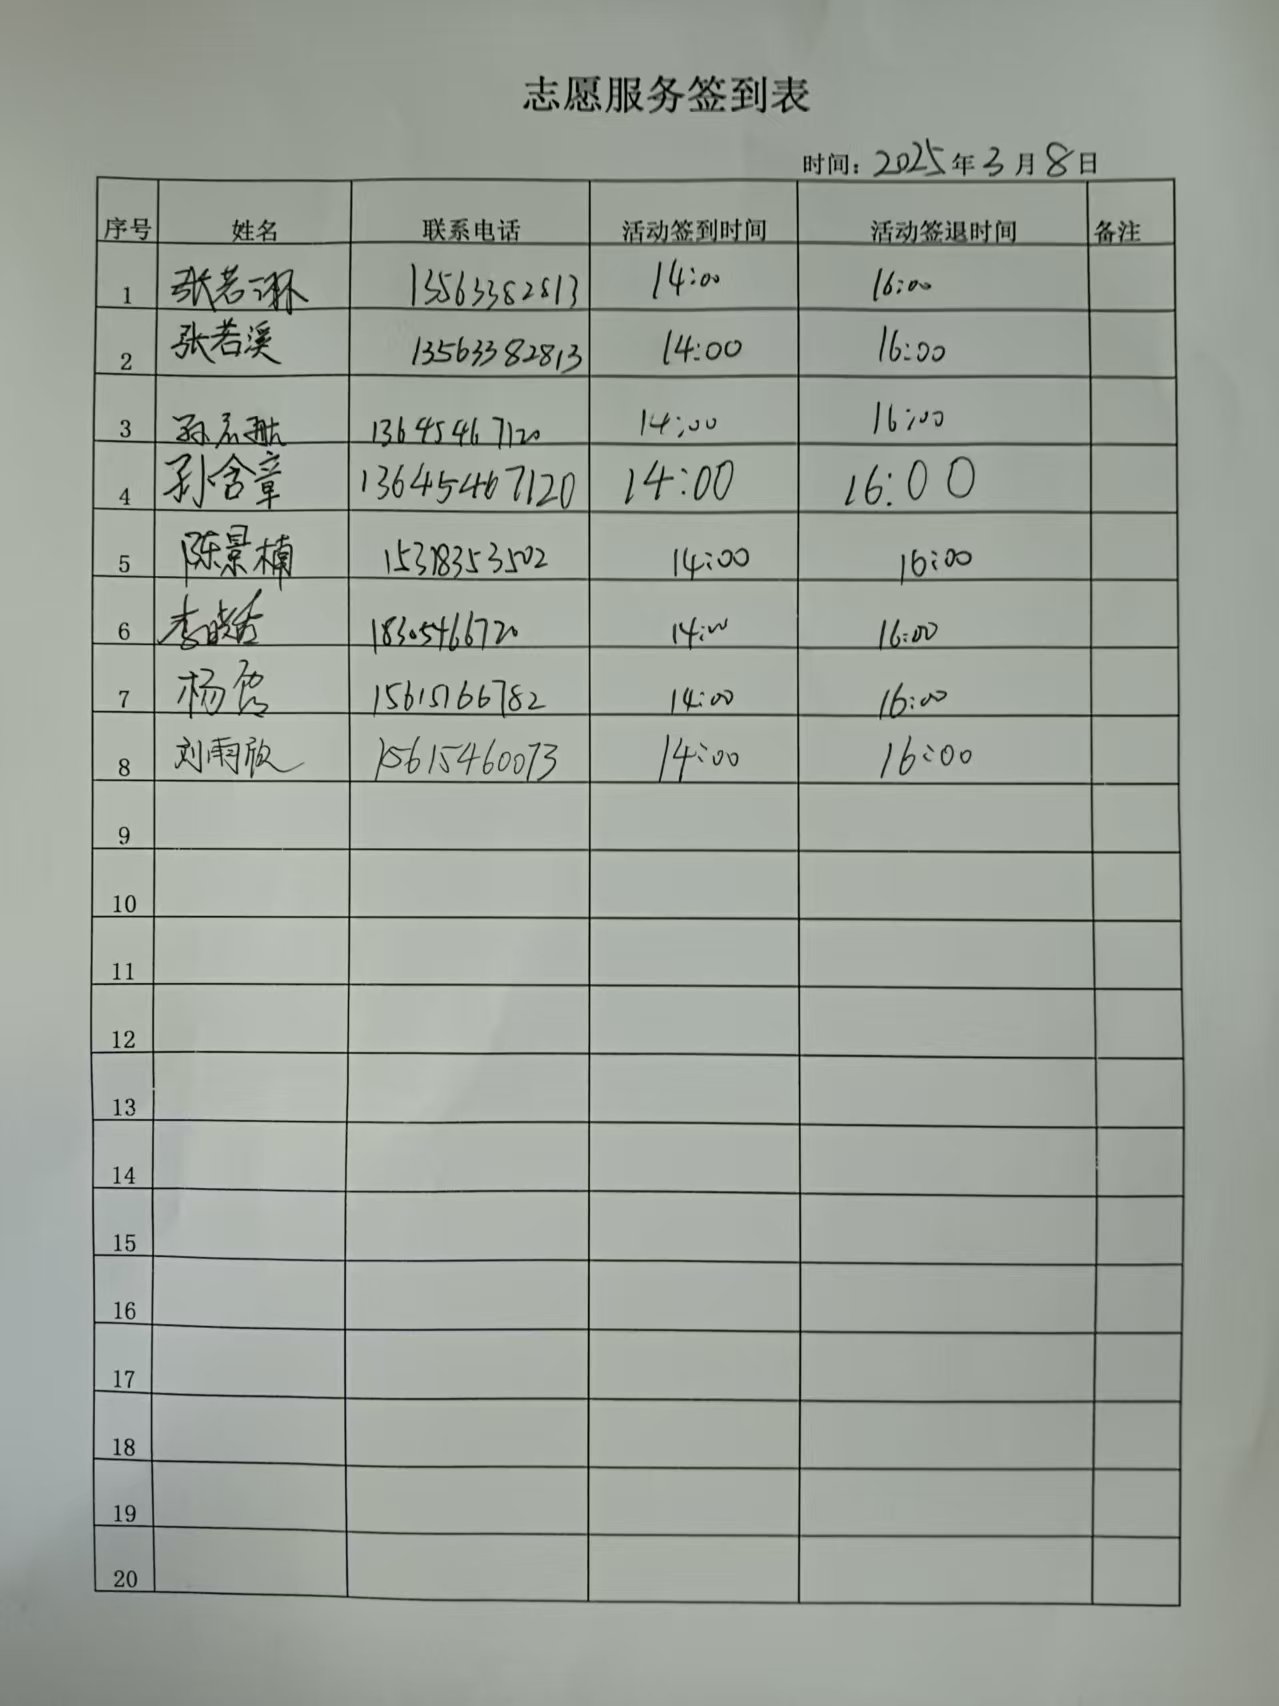 志愿服务签到表
时间：2025年3月8日
序号 姓名 联系电话 活动签到时间 活动签退时间 备注
1 张若琳 13563382813 14:00 16:00
2 张若溪 13563382813 14:00 16:00
3 孙 13645467120 14:00 16:00
4 孙含章 13645467120 14:00 16:00
5 陈景楠 15318353502 14:00 16:00
6 李晓 18305466720 14:00 16:00
7 杨 15615166782 14:00 16:00
8 刘雨欣 15615460073 14:00 16:00
9
10
11
12
13
14
15
16
17
18
19
20